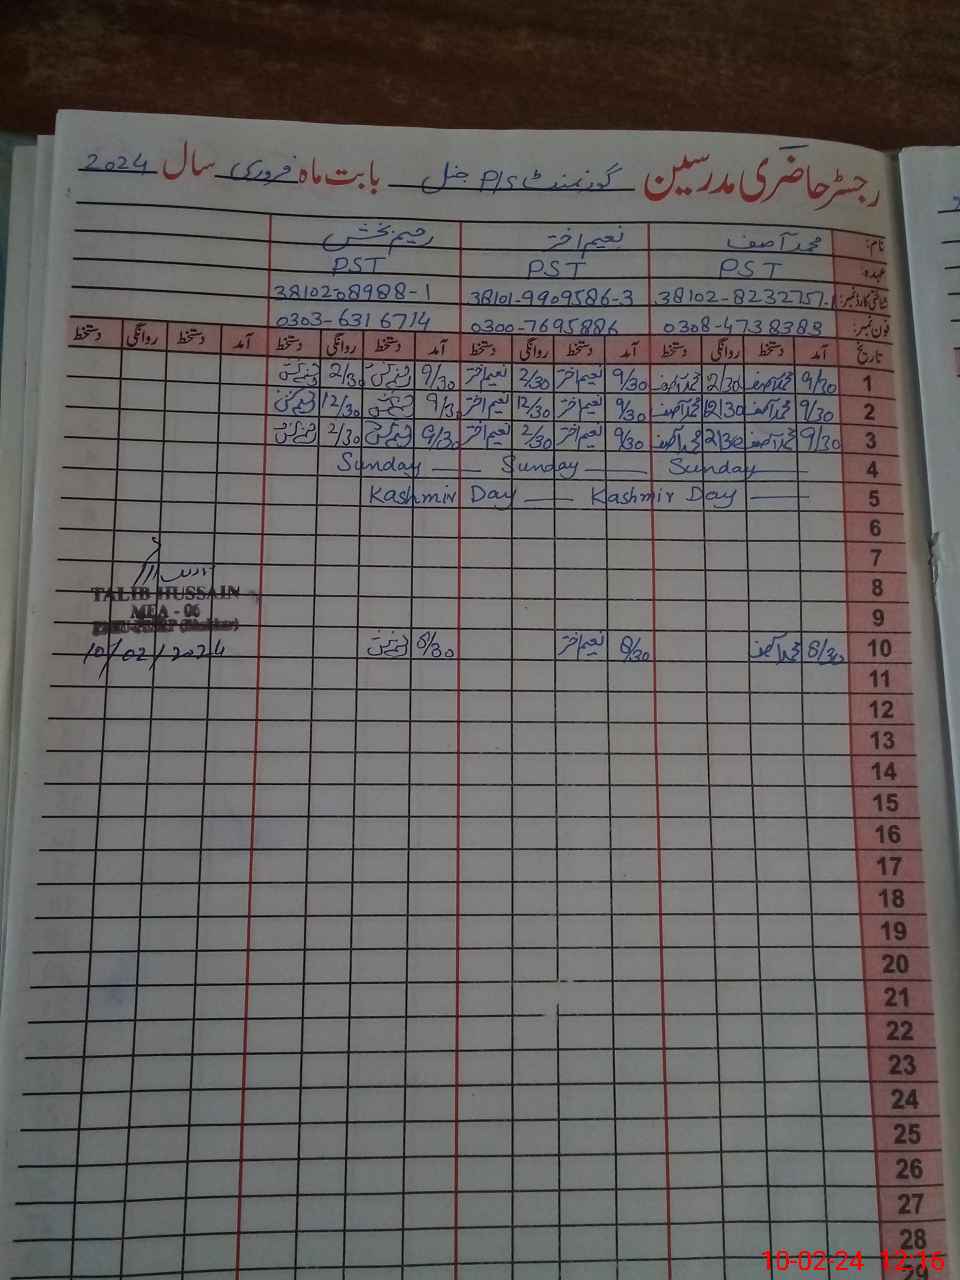 رجسٹر حاضری مدرسین گورنمنٹ P/S جنل بابت ماہ فروری سال 2024
نام: محمد آصف نعیم اختر رحیم بخش
عہدہ: PST PST PST
شناختی کارڈ نمبر: 38102-8232757-1 38101-9909586-3 3810208988-1
فون نمبر: 0308-4738388 0300-7695886 0303-6316714
تاریخ آمد دستخط روانگی دستخط آمد دستخط روانگی دستخط آمد دستخط روانگی دستخط آمد دستخط روانگی دستخط
1 9/30 محمد آصف 2/30 محمد آصف 9/30 نعیم اختر 2/30 نعیم اختر 9/30 2/30
2 9/30 محمد آصف 12/30 محمد آصف 9/30 نعیم اختر 12/30 نعیم اختر 9/3 12/30
3 9/30 محمد آصف 2/30 محمد آصف 9/30 نعیم اختر 2/30 نعیم اختر 9/30 2/30
4 Sunday — Sunday — Sunday —
5 Kashmir Day — Kashmir Day —
6
7
8
TALIB HUSSAIN
MEA - 06
9
10 8/30 محمد آصف 8/30 نعیم اختر 8/30
10/02/2024
11
12
13
14
15
16
17
18
19
20
21
22
23
24
25
26
27
28
29
10-02-24 12:16